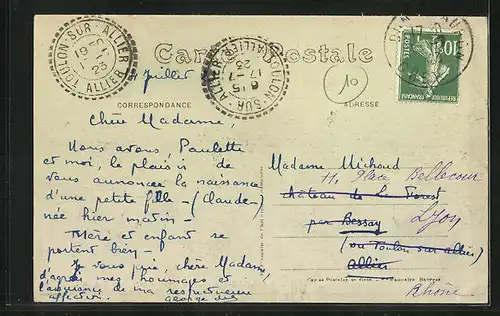 TOULON-SUR-ALLIER
ALLIER
23
Carte Postale
TOULON-SUR-ALLIER
(ALLIER)
17-7
23
10
POSTES
RÉPUBLIQUE FRANÇAISE
Juillet
CORRESPONDANCE
ADRESSE
Chère Madame,
Nous avons, Paulette
et moi, le plaisir de
vous annoncer la naissance
d'une petite fille - (Claude)
née hier matin -
Mère et enfant se
portent bien -
Je vous prie, chère Madame,
d'agréer mes hommages et
l'assurance de ma respectueuse
affection. Georges
Madame Michaud
11, Place Bellecour
château de la Forest
par Bessay
Lyon
(ou Toulon sur allier)
Allier
Rhône